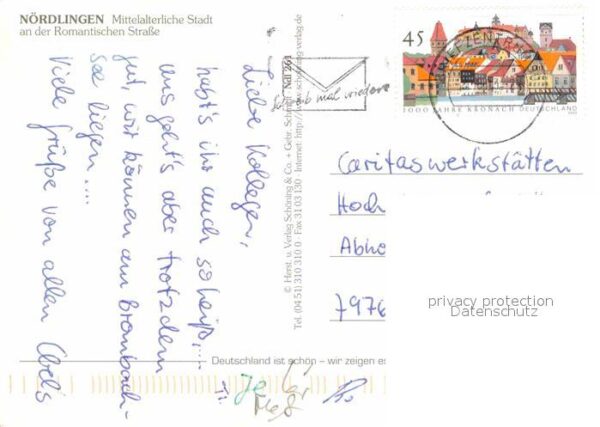 NÖRDLINGEN Mittelalterliche Stadt
an der Romantischen Straße
Liebe Kollegen,
habt's ihr auch so heiß....
uns geht's aber trotzdem
gut, wir können am Brombach-
see liegen....
Viele Grüße von allen Abels
© Herst. u. Verlag Schöning & Co. + Gebr. Schmidt
Tel. (04 51) 310 310 0 · Fax 31 03 130 · Internet: http://www.schoening-verlag.de
Nöl 261
Schreib mal wieder
45
1000 JAHRE KRONACH DEUTSCHLAND
Caritaswerkstätten
Hoch
Abho
7976
privacy protection
Datenschutz
Deutschland ist schön – wir zeigen es